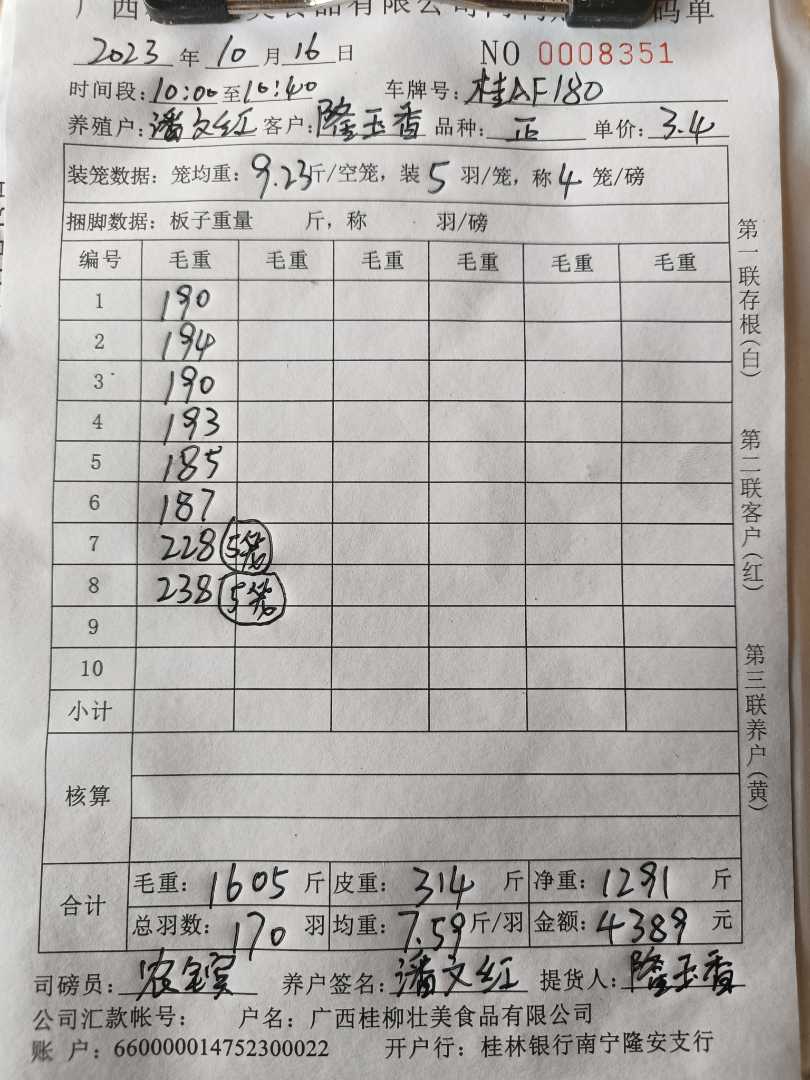 2023 年 10 月 16 日 NO 0008351
时间段: 10:00 至 10:40 车牌号: 桂AF180
养殖户: 潘文红 客户: 隆玉香 品种: 正 单价: 3.4
装笼数据: 笼均重: 9.23 斤/空笼, 装 5 羽/笼, 称 4 笼/磅
捆脚数据: 板子重量 斤, 称 羽/磅
编号 毛重 毛重 毛重 毛重 毛重 毛重
1 190
2 194
3 190
4 193
5 185
6 187
7 228 5笼
8 238 5笼
9
10
小计
核算
合计 毛重: 1605 斤 皮重: 314 斤 净重: 1291 斤
总羽数: 170 羽 均重: 7.59 斤/羽 金额: 4389 元
司磅员: 农宝宾 养户签名: 潘文红 提货人: 隆玉香
公司汇款帐号: 户名: 广西桂柳壮美食品有限公司
账 户: 660000014752300022 开户行: 桂林银行南宁隆安支行
第一联存根(白)
第二联客户(红)
第三联养户(黄)